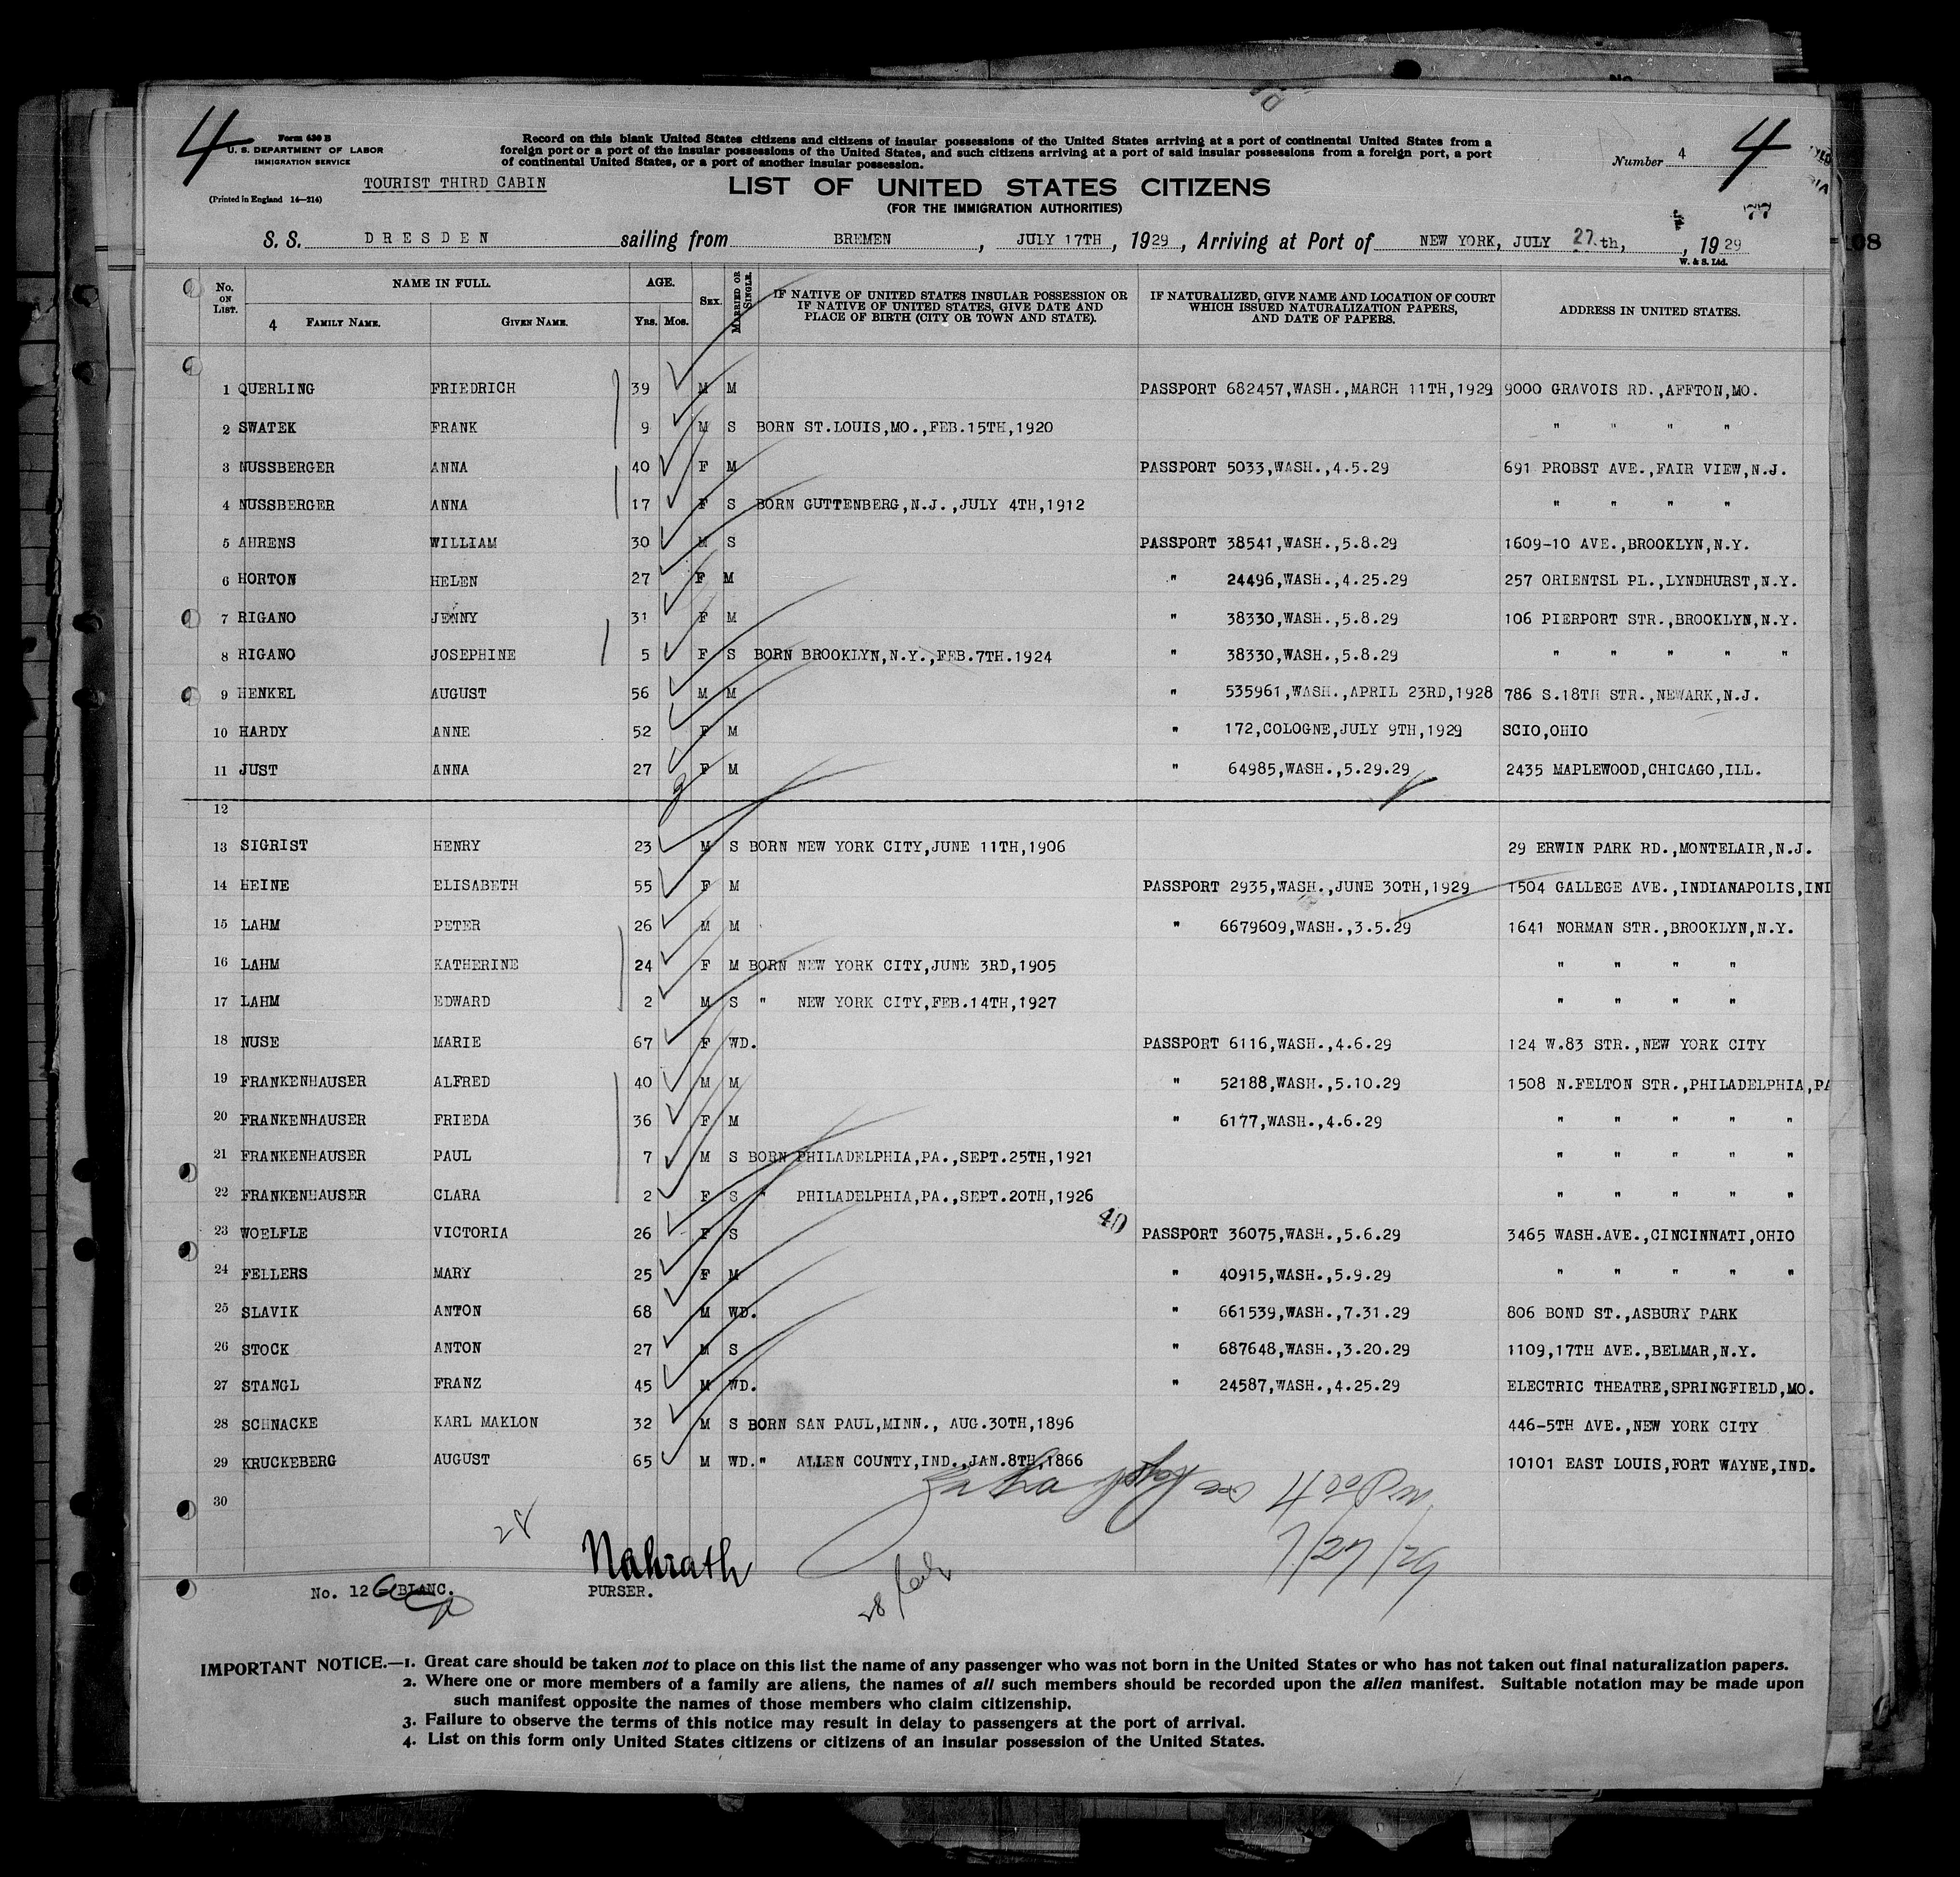 4
Form 630 B
U. S. DEPARTMENT OF LABOR
IMMIGRATION SERVICE
(Printed in England 14—214)
TOURIST THIRD CABIN
Record on this blank United States citizens and citizens of insular possessions of the United States arriving at a port of continental United States from a
foreign port or a port of the insular possessions of the United States, and such citizens arriving at a port of said insular possessions from a foreign port, a port
of continental United States, or a port of another insular possession.
LIST OF UNITED STATES CITIZENS
(FOR THE IMMIGRATION AUTHORITIES)
Number 4
4
77
S. S. DRESDEN sailing from BREMEN, JULY 17TH, 1929, Arriving at Port of NEW YORK, JULY 27th, , 1929
W. & S. Ltd.
08
No. ON LIST. NAME IN FULL. AGE. SEX. MARRIED OR SINGLE. IF NATIVE OF UNITED STATES INSULAR POSSESSION OR IF NATIVE OF UNITED STATES, GIVE DATE AND PLACE OF BIRTH (CITY OR TOWN AND STATE). IF NATURALIZED, GIVE NAME AND LOCATION OF COURT WHICH ISSUED NATURALIZATION PAPERS, AND DATE OF PAPERS. ADDRESS IN UNITED STATES.
4 FAMILY NAME. GIVEN NAME. Yrs. Mos.
1 QUERLING FRIEDRICH 39 M M PASSPORT 682457,WASH.,MARCH 11TH,1929 9000 GRAVOIS RD.,AFFTON,MO.
2 SWATEK FRANK 9 M S BORN ST.LOUIS,MO.,FEB.15TH,1920 " " " "
3 NUSSBERGER ANNA 40 F M PASSPORT 5033,WASH.,4.5.29 691 PROBST AVE.,FAIR VIEW,N.J.
4 NUSSBERGER ANNA 17 F S BORN GUTTENBERG,N.J.,JULY 4TH,1912 " " " "
5 AHRENS WILLIAM 30 M S PASSPORT 38541,WASH.,5.8.29 1609-10 AVE.,BROOKLYN,N.Y.
6 HORTON HELEN 27 F M " 24496,WASH.,4.25.29 257 ORIENTSL PL.,LYNDHURST,N.Y.
7 RIGANO JENNY 31 F M " 38330,WASH.,5.8.29 106 PIERPORT STR.,BROOKLYN,N.Y.
8 RIGANO JOSEPHINE 5 F S BORN BROOKLYN,N.Y.,FEB.7TH.1924 " 38330,WASH.,5.8.29 " " " " "
9 HENKEL AUGUST 56 M M " 535961,WASH.,APRIL 23RD,1928 786 S.18TH STR.,NEWARK,N.J.
10 HARDY ANNE 52 F M " 172,COLOGNE,JULY 9TH,1929 SCIO,OHIO
11 JUST ANNA 27 F M " 64985,WASH.,5.29.29 2435 MAPLEWOOD,CHICAGO,ILL.
12
13 SIGRIST HENRY 23 M S BORN NEW YORK CITY,JUNE 11TH,1906 29 ERWIN PARK RD.,MONTELAIR,N.J.
14 HEINE ELISABETH 55 F M PASSPORT 2935,WASH.,JUNE 30TH,1929 1504 GALLEGE AVE.,INDIANAPOLIS,IND
15 LAHM PETER 26 M M " 6679609,WASH.,3.5.29 1641 NORMAN STR.,BROOKLYN,N.Y.
16 LAHM KATHERINE 24 F M BORN NEW YORK CITY,JUNE 3RD,1905 " " " "
17 LAHM EDWARD 2 M S " NEW YORK CITY,FEB.14TH,1927 " " " "
18 NUSE MARIE 67 F WD. PASSPORT 6116,WASH.,4.6.29 124 W.83 STR.,NEW YORK CITY
19 FRANKENHAUSER ALFRED 40 M M " 52188,WASH.,5.10.29 1508 N.FELTON STR.,PHILADELPHIA,PA
20 FRANKENHAUSER FRIEDA 36 F M " 6177,WASH.,4.6.29 " " " " "
21 FRANKENHAUSER PAUL 7 M S BORN PHILADELPHIA,PA.,SEPT.25TH,1921 " " " " "
22 FRANKENHAUSER CLARA 2 F S " PHILADELPHIA,PA.,SEPT.20TH,1926 " " " " "
40
23 WOELFLE VICTORIA 26 F S PASSPORT 36075,WASH.,5.6.29 3465 WASH.AVE.,CINCINNATI,OHIO
24 FELLERS MARY 25 F M " 40915,WASH.,5.9.29 " " " " "
25 SLAVIK ANTON 68 M WD. " 661539,WASH.,7.31.29 806 BOND ST.,ASBURY PARK
26 STOCK ANTON 27 M S " 687648,WASH.,3.20.29 1109,17TH AVE.,BELMAR,N.Y.
27 STANGL FRANZ 45 M WD. " 24587,WASH.,4.25.29 ELECTRIC THEATRE,SPRINGFIELD,MO.
28 SCHNACKE KARL MAKLON 32 M S BORN SAN PAUL,MINN., AUG.30TH,1896 446-5TH AVE.,NEW YORK CITY
29 KRUCKEBERG AUGUST 65 M WD. " ALLEN COUNTY,IND.,JAN.8TH,1866 10101 EAST LOUIS,FORT WAYNE,IND.
30
28
7/27/29
Nahrath
No. 12 BLANC. PURSER.
28
IMPORTANT NOTICE.—1. Great care should be taken not to place on this list the name of any passenger who was not born in the United States or who has not taken out final naturalization papers.
2. Where one or more members of a family are aliens, the names of all such members should be recorded upon the alien manifest. Suitable notation may be made upon
such manifest opposite the names of those members who claim citizenship.
3. Failure to observe the terms of this notice may result in delay to passengers at the port of arrival.
4. List on this form only United States citizens or citizens of an insular possession of the United States.